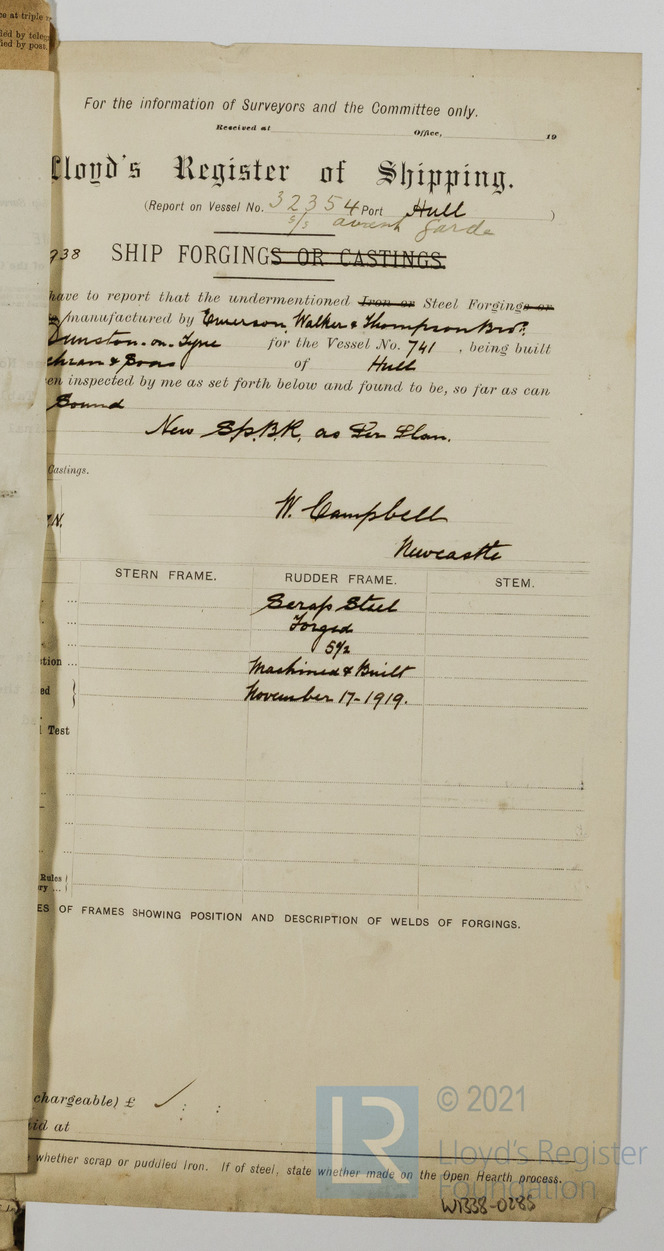 ce at triple
led by teleg
fied by post.
For the information of Surveyors and the Committee only.
Received at Office, 19
Lloyd's Register of Shipping.
(Report on Vessel No. 32354 Port Hull )
s/s avant garde
938 SHIP FORGINGS OR CASTINGS.
have to report that the undermentioned Iron or Steel Forgings or
manufactured by Emerson, Walker & Thompson Bros.
Dunston-on-Tyne for the Vessel No. 741 , being built
chran & Sons of Hull
en inspected by me as set forth below and found to be, so far as can
Sound
New Sp.B.R, as Per Plan.
Castings.
W. Campbell
Newcastle
STERN FRAME. RUDDER FRAME. STEM.
Scrap Steel
Forged
5½
tion ... Machined & Built
ed November 17-1919.
Test
Rules
ry ...
ES OF FRAMES SHOWING POSITION AND DESCRIPTION OF WELDS OF FORGINGS.
chargeable) £ : :
aid at
whether scrap or puddled Iron. If of steel, state whether made on the Open Hearth process.
LR
© 2021
Lloyd's Register
Foundation
W1338-0285